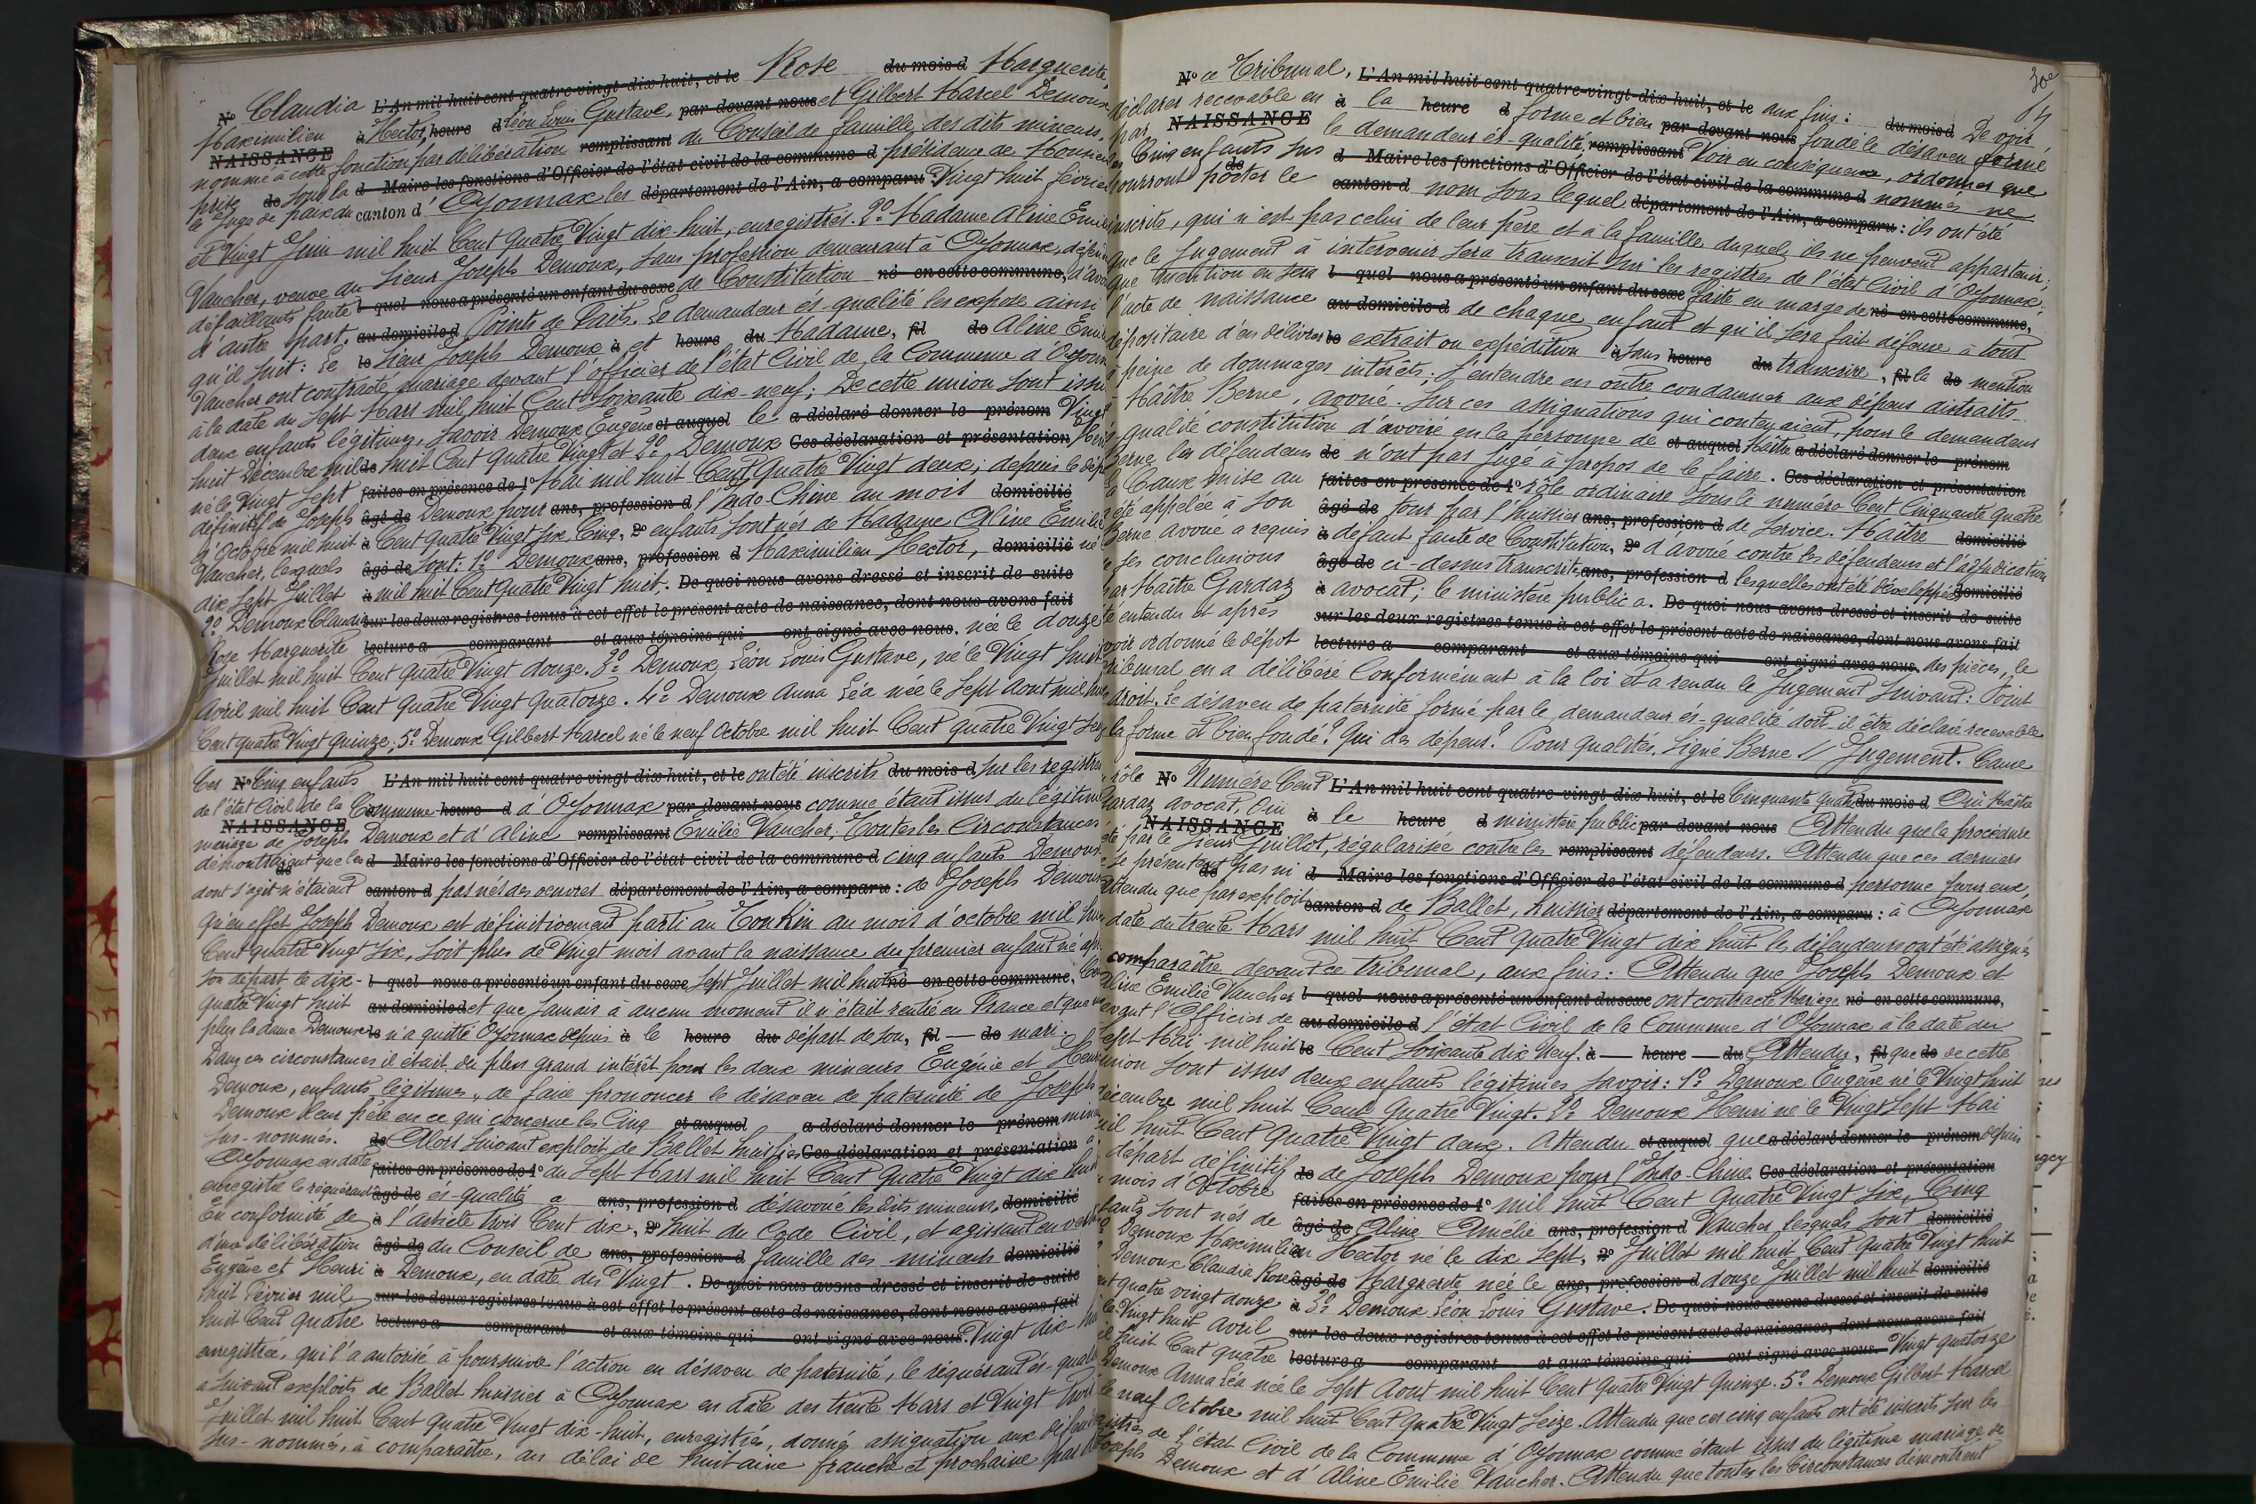 Nº Claudia L'An mil huit cent quatre-vingt-dix huit, et le Rose du mois d Marguerite
Maximilien à Hector, heure d Léon Louis Gustave, par devant nous et Gilbert Marcel Demoux
NAISSANCE nommé à cette fonction par délibération remplissant du Conseil de famille des dits mineurs,
prise de sous la d Maire les fonctions d'Officier de l'état civil de la commune d présidence de Monsieur
le Juge de paix du canton d'Oyonnax les département de l'Ain, a comparu Vingt huit février
et Vingt Juin mil huit Cent quatre Vingt dix-huit, enregistrés. 2º Madame Aline Emilie
Vaucher, veuve du sieur Joseph Demoux, sans profession demeurant à Oyonnax, défen
défaillants faute l quel nous a présenté un enfant du sexe de Constitution né en cette commune, d'avoué
d'autre part. au domicile d Points de faits. Le demandeur és-qualité les expose ainsi
qu'il suit: Le le sieur Joseph Demoux à et heure du Madame, fil de Aline Emilie
Vaucher ont contracté mariage devant l'officier de l'état Civil de la Commune d'Oyonnax
à la date du Sept Mars mil huit Cent Soixante dix-neuf; De cette union sont issus
deux enfants légitimes, savoir Demoux Eugène et auquel le a déclaré donner le prénom Vingt
huit Décembre mil de huit Cent quatre Vingt et 2º Demoux Ces déclaration et présentation Henri
né le Vingt Sept faites en présence de 1º Mai mil huit Cent quatre Vingt deux; depuis le dép
définitif de Joseph âgé de Demoux pour ans, profession d l'Indo Chine au mois domicilié
d'Octobre mil huit à Cent quatre Vingt six Cinq, 2º enfants sont nés de Madame Aline Emilie
Vaucher, lesquels âgé de sont: 1º Demoux ans, profession d Maximilien Hector, domicilié né
dix Sept Juillet à mil huit Cent quatre Vingt huit. De quoi nous avons dressé et inscrit de suite
2º Demoux Claudia sur les deux registres tenus à cet effet le présent acte de naissance, dont nous avons fait
Rose Marguerite lecture a comparant et aux témoins qui ont signé avec nous. née le douze
Juillet mil huit Cent quatre Vingt douze. 3º Demoux Léon Louis Gustave, né le Vingt huit
Avril mil huit Cent quatre Vingt quatorze. 4º Demoux Anna Léa née le Sept Aout mil huit
Cent quatre Vingt quinze; 5º Demoux Gilbert Marcel né le neuf Octobre mil huit Cent quatre Vingt Seize
Ces Nº Cinq enfants L'An mil huit cent quatre-vingt-dix huit, et le ont été inscrits du mois d sur les registres
de l'état Civil de la Commune heure d d'Oyonnax par devant nous comme étant issus du légitime
NAISSANCE mariage de Joseph Demoux et d'Aline remplissant Emilie Vaucher. Toutes les Circonstances
démontraient que les d Maire les fonctions d'Officier de l'état civil de la commune d cinq enfants Demoux
de dont s'agit n'étaient canton d pas nés des oeuvres département de l'Ain, a comparu : de Joseph Demoux
Qu'en effet Joseph Demoux est définitivement parti au Tonkin au mois d'octobre mil huit
Cent quatre Vingt Six, soit plus de Vingt mois avant la naissance du premier enfant né apr.
son départ le dix- l quel nous a présenté un enfant du sexe Sept Juillet mil huit né en cette commune, Cent
quatre Vingt huit au domicile d et que jamais à aucun moment il n'était rentré en France et que
plus la dame Demoux le n'a quitté Oyonnax depuis à le heure du départ de son, fil — de mari.
Dans ces circonstances il était du plus grand intérêt pour les deux mineurs Eugénie et Henri
Demoux, enfants légitimes, de faire prononcer le désaveu de paternité de Joseph
Demoux leur père en ce qui concerne les Cinq et auquel a déclaré donner le prénom mineurs
sus-nommés. de Alors suivant exploit de Ballet huissier Ces déclaration et présentation à
Oyonnax en date faites en présence de 1º du Sept Mars mil huit Cent quatre Vingt dix huit
enregistré le requérant âgé de és-qualité a ans, profession d désavoué les dits mineurs domicilié
En conformité de à l'article trois Cent dix, 2º huit du Code Civil, et agissant en vertu
d'une délibération âgé de du Conseil de ans, profession d famille des mineurs domicilié
Eugène et Henri à Demoux, en date du Vingt. De quoi nous avons dressé et inscrit de suite
huit Février mil sur les deux registres tenus à cet effet le présent acte de naissance, dont nous avons fait
huit Cent quatre lecture a comparant et aux témoins qui ont signé avec nous. Vingt dix-huit
enregistrée, qui l'a autorisé à poursuivre l'action en désaveu de paternité, le requérant és-qualité
a suivant exploits de Ballet huissier à Oyonnax en date des trente Mars et Vingt huit
Juillet mil huit Cent quatre Vingt dix-huit, enregistrés, donné assignation aux défen
sus-nommés, à comparaître, au délai de huitaine franche et prochaine par dev
30e
Nº ce Tribunal, L'An mil huit cent quatre-vingt-dix huit, et le aux fins: du mois d De voir
déclarer recevable en à la heure d forme et bien par devant nous fondé le désaveu formé
par NAISSANCE le demandeur és-qualité, remplissant Voir en conséquence, ordonner que
les Cinq enfants sus d Maire les fonctions d'Officier de l'état civil de la commune d nommés ne
pourront de porter le canton d nom sous lequel département de l'Ain, a comparu : ils ont été
inscrits, qui n'est pas celui de leur père et à la famille duquel ils ne peuvent appartenir;
que le Jugement à intervenir sera transcrit sur les registres de l'état Civil d'Oyonnax;
que mention en sera l quel nous a présenté un enfant du sexe faite en marge de né en cette commune,
l'acte de naissance au domicile d de chaque enfant et qu'il sera fait défense à tout
dépositaire d'en délivrer le extrait ou expédition à sans heure du transcrire, fil la de mention
à peine de dommages intérêts; s'entendre en outre condamner aux dépens distraits
à Maître Berne, avoué. Sur ces assignations qui contenaient, pour le demandeur
és qualité constitution d'avoué en la personne de et auquel Maître a déclaré donner le prénom
Berne, les défendeurs de n'ont pas jugé à propos de le faire. Ces déclaration et présentation
la Cause mise au faites en présence de 1º rôle ordinaire sous le numéro Cent Cinquante quatre
a été appelée à son âgé de tour par l'huissier ans, profession d de service. Maître domicilié
Berne avoué a requis à défaut faute de Constitution, 2º d'avoué contre les défendeurs et l'adjudication
de ses conclusions âgé de ci-dessus transcrites, ans, profession d lesquelles ont été développées domicilié
par Maître Gardaz à avocat; le ministère public a. De quoi nous avons dressé et inscrit de suite
été entendu et après sur les deux registres tenus à cet effet le présent acte de naissance, dont nous avons fait
avoir ordonné le dépôt lecture a comparant et aux témoins qui ont signé avec nous. des pièces, le
tribunal en a délibéré Conformément à la loi et a rendu le Jugement suivant: Point
droit. Le désaveu de paternité formé par le demandeur és-qualité doit-il être déclaré recevable
la forme et bien fondé? Qui des dépens? Pour qualités. Signé Berne // Jugement. Cause
rôle Nº Numéro Cent L'An mil huit cent quatre-vingt-dix huit, et le Cinquante quatre du mois d Ouï Maître
Gardaz avocat, Ouï à le heure d ministère public par devant nous Attendu que la procédure
NAISSANCE été par le sieur Juillot, régularisée contre les remplissant défendeurs. Attendu que ces derniers
ne se présentent de pas ni d Maire les fonctions d'Officier de l'état civil de la commune d personne pour eux,
Attendu que par exploit canton d de Ballet, huissier département de l'Ain, a comparu : à Oyonnax
date du trente Mars mil huit Cent quatre Vingt dix huit les défendeurs ont été assignés
comparaître devant ce tribunal, aux fins: Attendu que Joseph Demoux et
Aline Emilie Vaucher l quel nous a présenté un enfant du sexe ont contracté Mariage né en cette commune,
devant l'Officier de au domicile d l'état Civil de la Commune d'Oyonnax à la date du
Sept Mai mil huit le Cent Soixante dix Neuf. à — heure — du Attendu, fil que de de cette
union sont issus deux enfants légitimes savoir: 1º Demoux Eugène né le Vingt huit
décembre mil huit Cent quatre Vingt. 2º Demoux Henri né le Vingt Sept Mai
mil huit Cent quatre Vingt deux. Attendu et auquel que a déclaré donner le prénom depuis
départ définitif de de Joseph Demoux pour l'Indo-Chine Ces déclaration et présentation
mois d'Octobre faites en présence de 1º mil huit Cent quatre Vingt six, Cinq
enfants sont nés de âgé de Aline Amélie ans, profession d Vaucher lesquels sont domicilié
Demoux Maximilien Hector né le dix Sept, 2º Juillet mil huit Cent quatre Vingt huit
Demoux Claudia Rose âgé de Marguerite née le ans, profession d douze Juillet mil huit domicilié
Cent quatre vingt douze à 3º Demoux Léon Louis Gustave. De quoi nous avons dressé et inscrit de suite
le Vingt huit Avril sur les deux registres tenus à cet effet le présent acte de naissance, dont nous avons fait
mil huit Cent quatre lecture a comparant et aux témoins qui ont signé avec nous. Vingt quatorze
Demoux Anna Léa née le Sept Aout mil huit Cent quatre Vingt quinze. 5º Demoux Gilbert Marcel
le neuf Octobre mil huit Cent quatre Vingt Seize. Attendu que ces cinq enfants ont été inscrits sur les
registres de l'état Civil de la Commune d'Oyonnax comme étant issus du légitime mariage de
Joseph Demoux et d'Aline Emilie Vaucher. Attendu que toutes les Circonstances démontrent